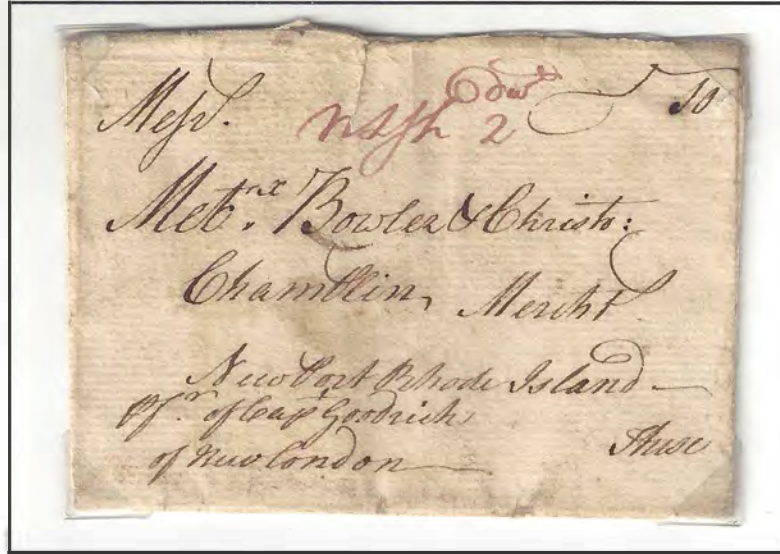 Messrs. To
n sh 2 6 dwt
Metr. Bowler & Christo:
Chamblin, Mercht
New Port Rhode Island
pfr. of Cap Goodrich
of New London